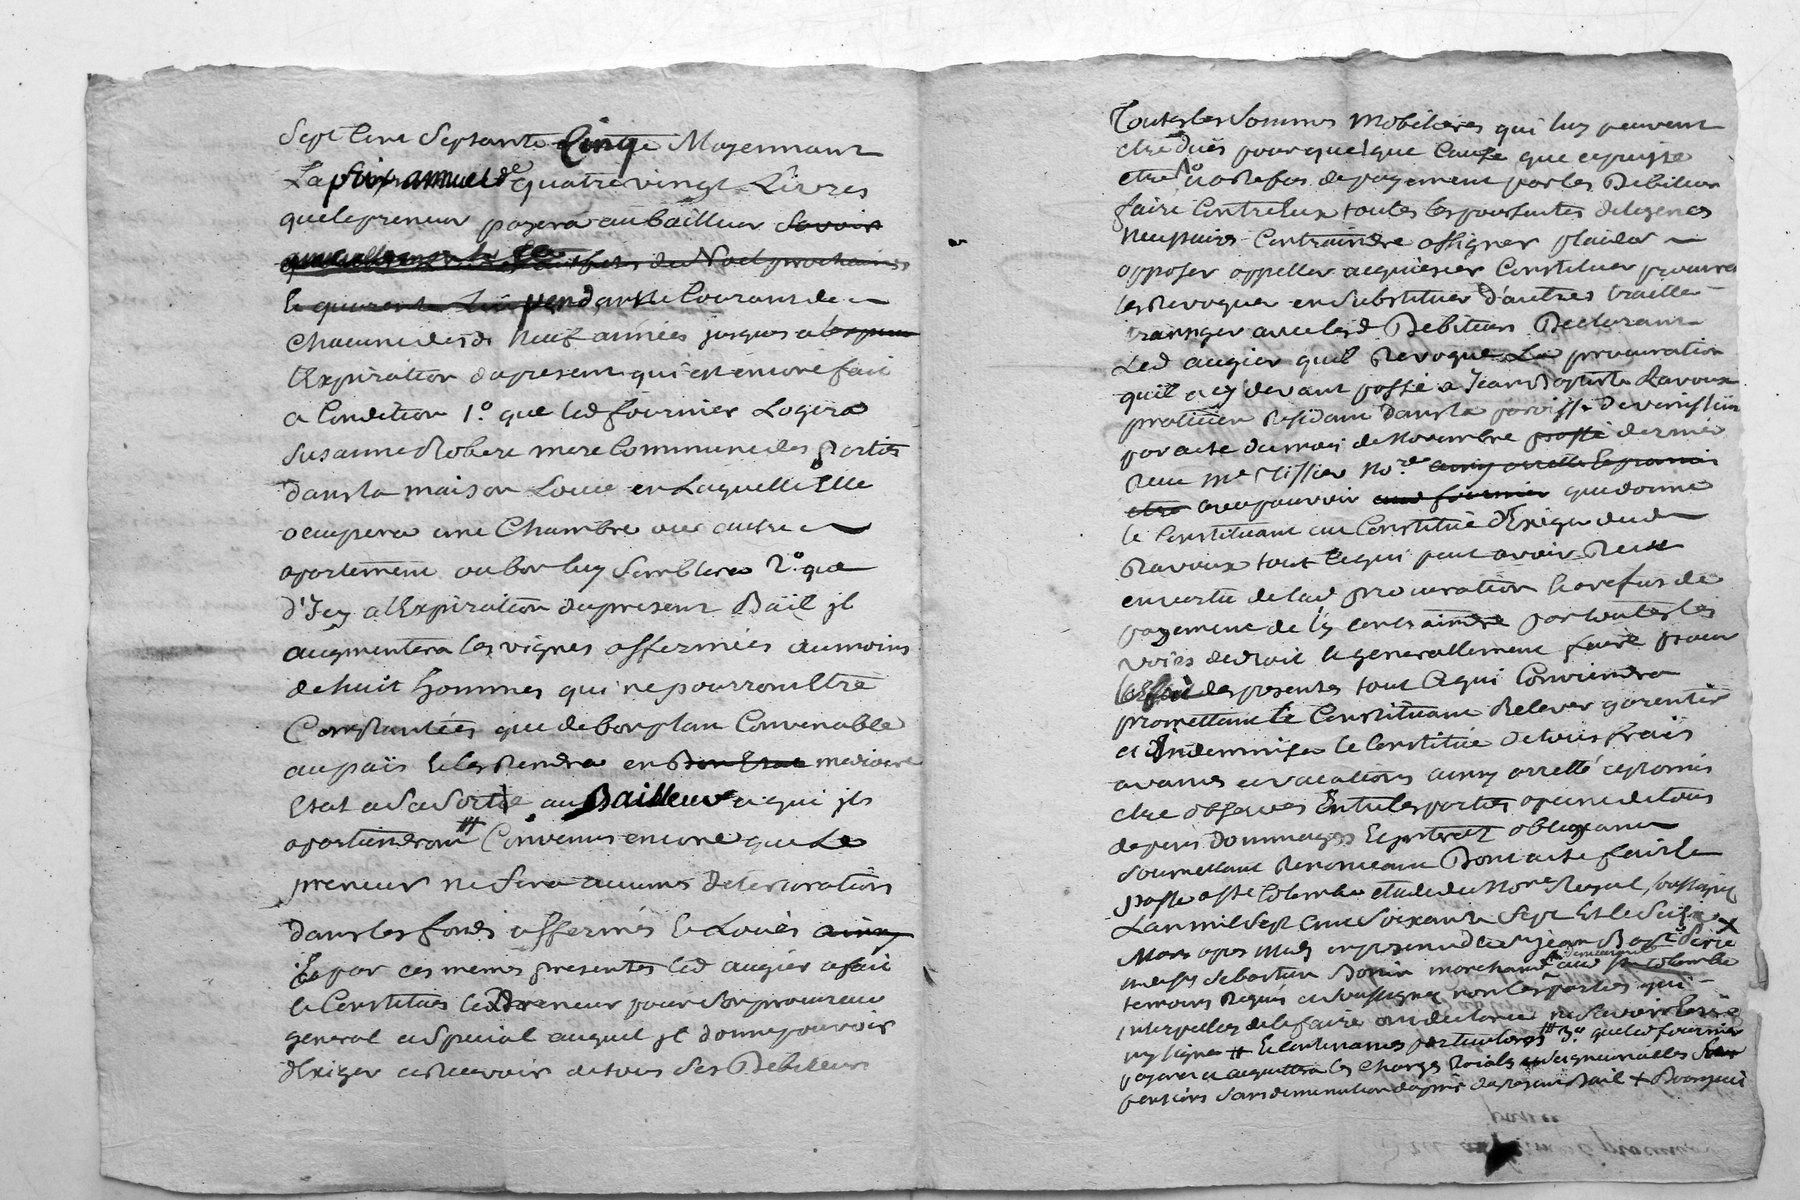 Sept Cent Septante Cinq Moyennant
La prix annuel de quatre vingt Livres
que le preneur payera au bailleur Savoir
festes de Noel prochaines
et quarante pendant le Courant de
Chacune desd neuf années jusques a
lExpiration du present qui est encore fait
a Condition 1o. que led fournier Logera
Susanne Robert mere Commune des parties
dans la maison Louée en Laquelle Elle
ocupera une Chambre ou autre
apartement ou bon luy Semblera 2o. que
d'Jcy a lExpiration du present Bail jl
augmentera les vignes affermées au moins
de huit hommes qui ne pourront Etre
Complantées que de bon plan Convenable
au païs et les Rendra en Bon Etat mediocre
Etat a Sa Sortie au Bailleur a qui jls
apartiendront # Convenus encore que Le
preneur ne fera aucunes deteriorations
dans les fonds affermés et Loués ainsy
Et par ces memes presentes led augier a fait
et Constitués led Preneur pour Son procureur
general et Special auquel jl donne pouvoir
dExiger et Recevoir de tous Ses Debiteurs
Toutes les Sommes Mobiliaires qui luy peuvent
etre Dües pour quelque Cause que ce puisse
etre a Refus de payement par les Debiteurs
faire Contre Eux toutes les poursuites diligences
necessaires Contraindre assigner plaider
opposer appeller acquiescer Constituer procureurs
les Revoquer en Substituer d'autres traitter
transiger avec lesd Debiteurs Declarant
Led augier quil Revoque La procuration
quil a cy devant passé a Jean Baptiste Ravoux
praticien Residant dans la paroisse de
par acte du mois de Novembre passé dernier
Receu Me Tissier Nore ainsy arretté et promis
etre avec pouvoir aud fournier que donne
le Constituant au Constitué d'Exiger dud
Ravoux tout ce qui peut avoir Receu
en vertu de lad procuration et a refus de
payement de ly contraindre par toutes les
voies de droit et generallement faire pour
leffet des presentes tout Ce qui Conviendra
promettant le Constituant Relever garentir
et Indemniser le Constitué de tous frais
avances et vacations ainsy arretté et promis
etre observés Entre les parties a peine de tous
depens Dommages Et interets obligeant
Soumettant Renonceant Dont acte fait et
passé a Ste Colombe etude du Nore Royal Soussigné
Lan mil Sept Cent Soixante Sept Et le Seize
Mars apres Midy en presence de Sr Jean Bapte
et Sr Sebastien Bonin marchand demeurant aud Ste Colombe
temoins Requis et Soussignez non les parties qui
interpellez de le faire ont declaré ne Scavoir Ecrire
ny Signer # Et Contenances particulieres ## 3o. que led fournier
payera et acquittera les Charges Roiales et Seigneurialles
pentions Sans diminution du prix du present Bail + Bourgeois